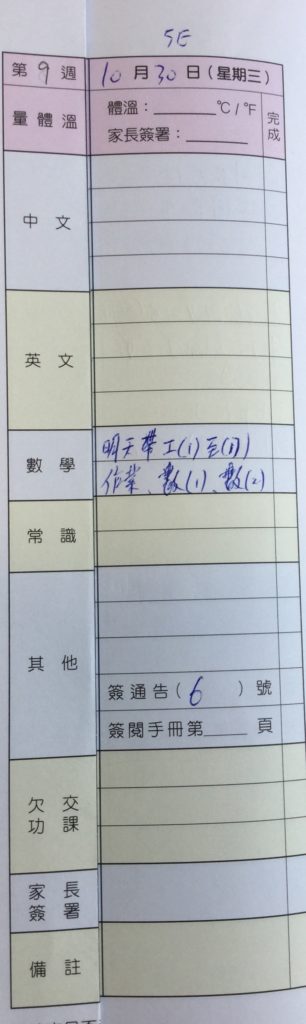 5E
第9週 10月30日(星期三)
量體溫 體溫：______℃/℉ 完成
家長簽署：______
中文
英文
數學 明天帶工(1)至(11)
作業、數(1)、數(2)
常識
其他
簽通告(6)號
簽閱手冊第____頁
欠交功課
家長簽署
備註